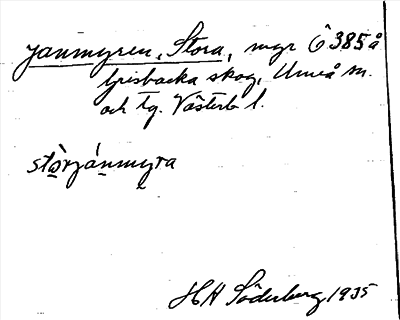 Janmyren, Stora, myr Ö 385 å
Grisbacka skog, Umeå sn.
och tg. Västerb l.
stòrjánmyra
H H Söderberg 1935